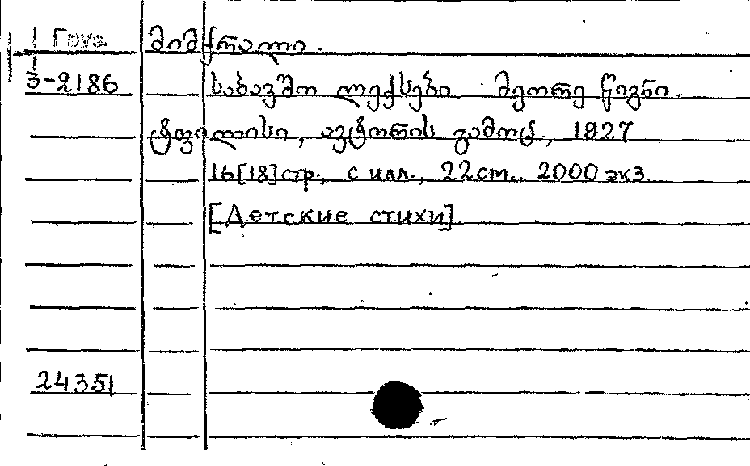 Груз. მიმქრალი.
3-2186 საბავშო ლექსები მეორე წიგნი.
ტფილისი, ავტორის გამოც, 1927
16[18]стр., с илл., 22cm., 2000 экз
[Детские стихи]
24351